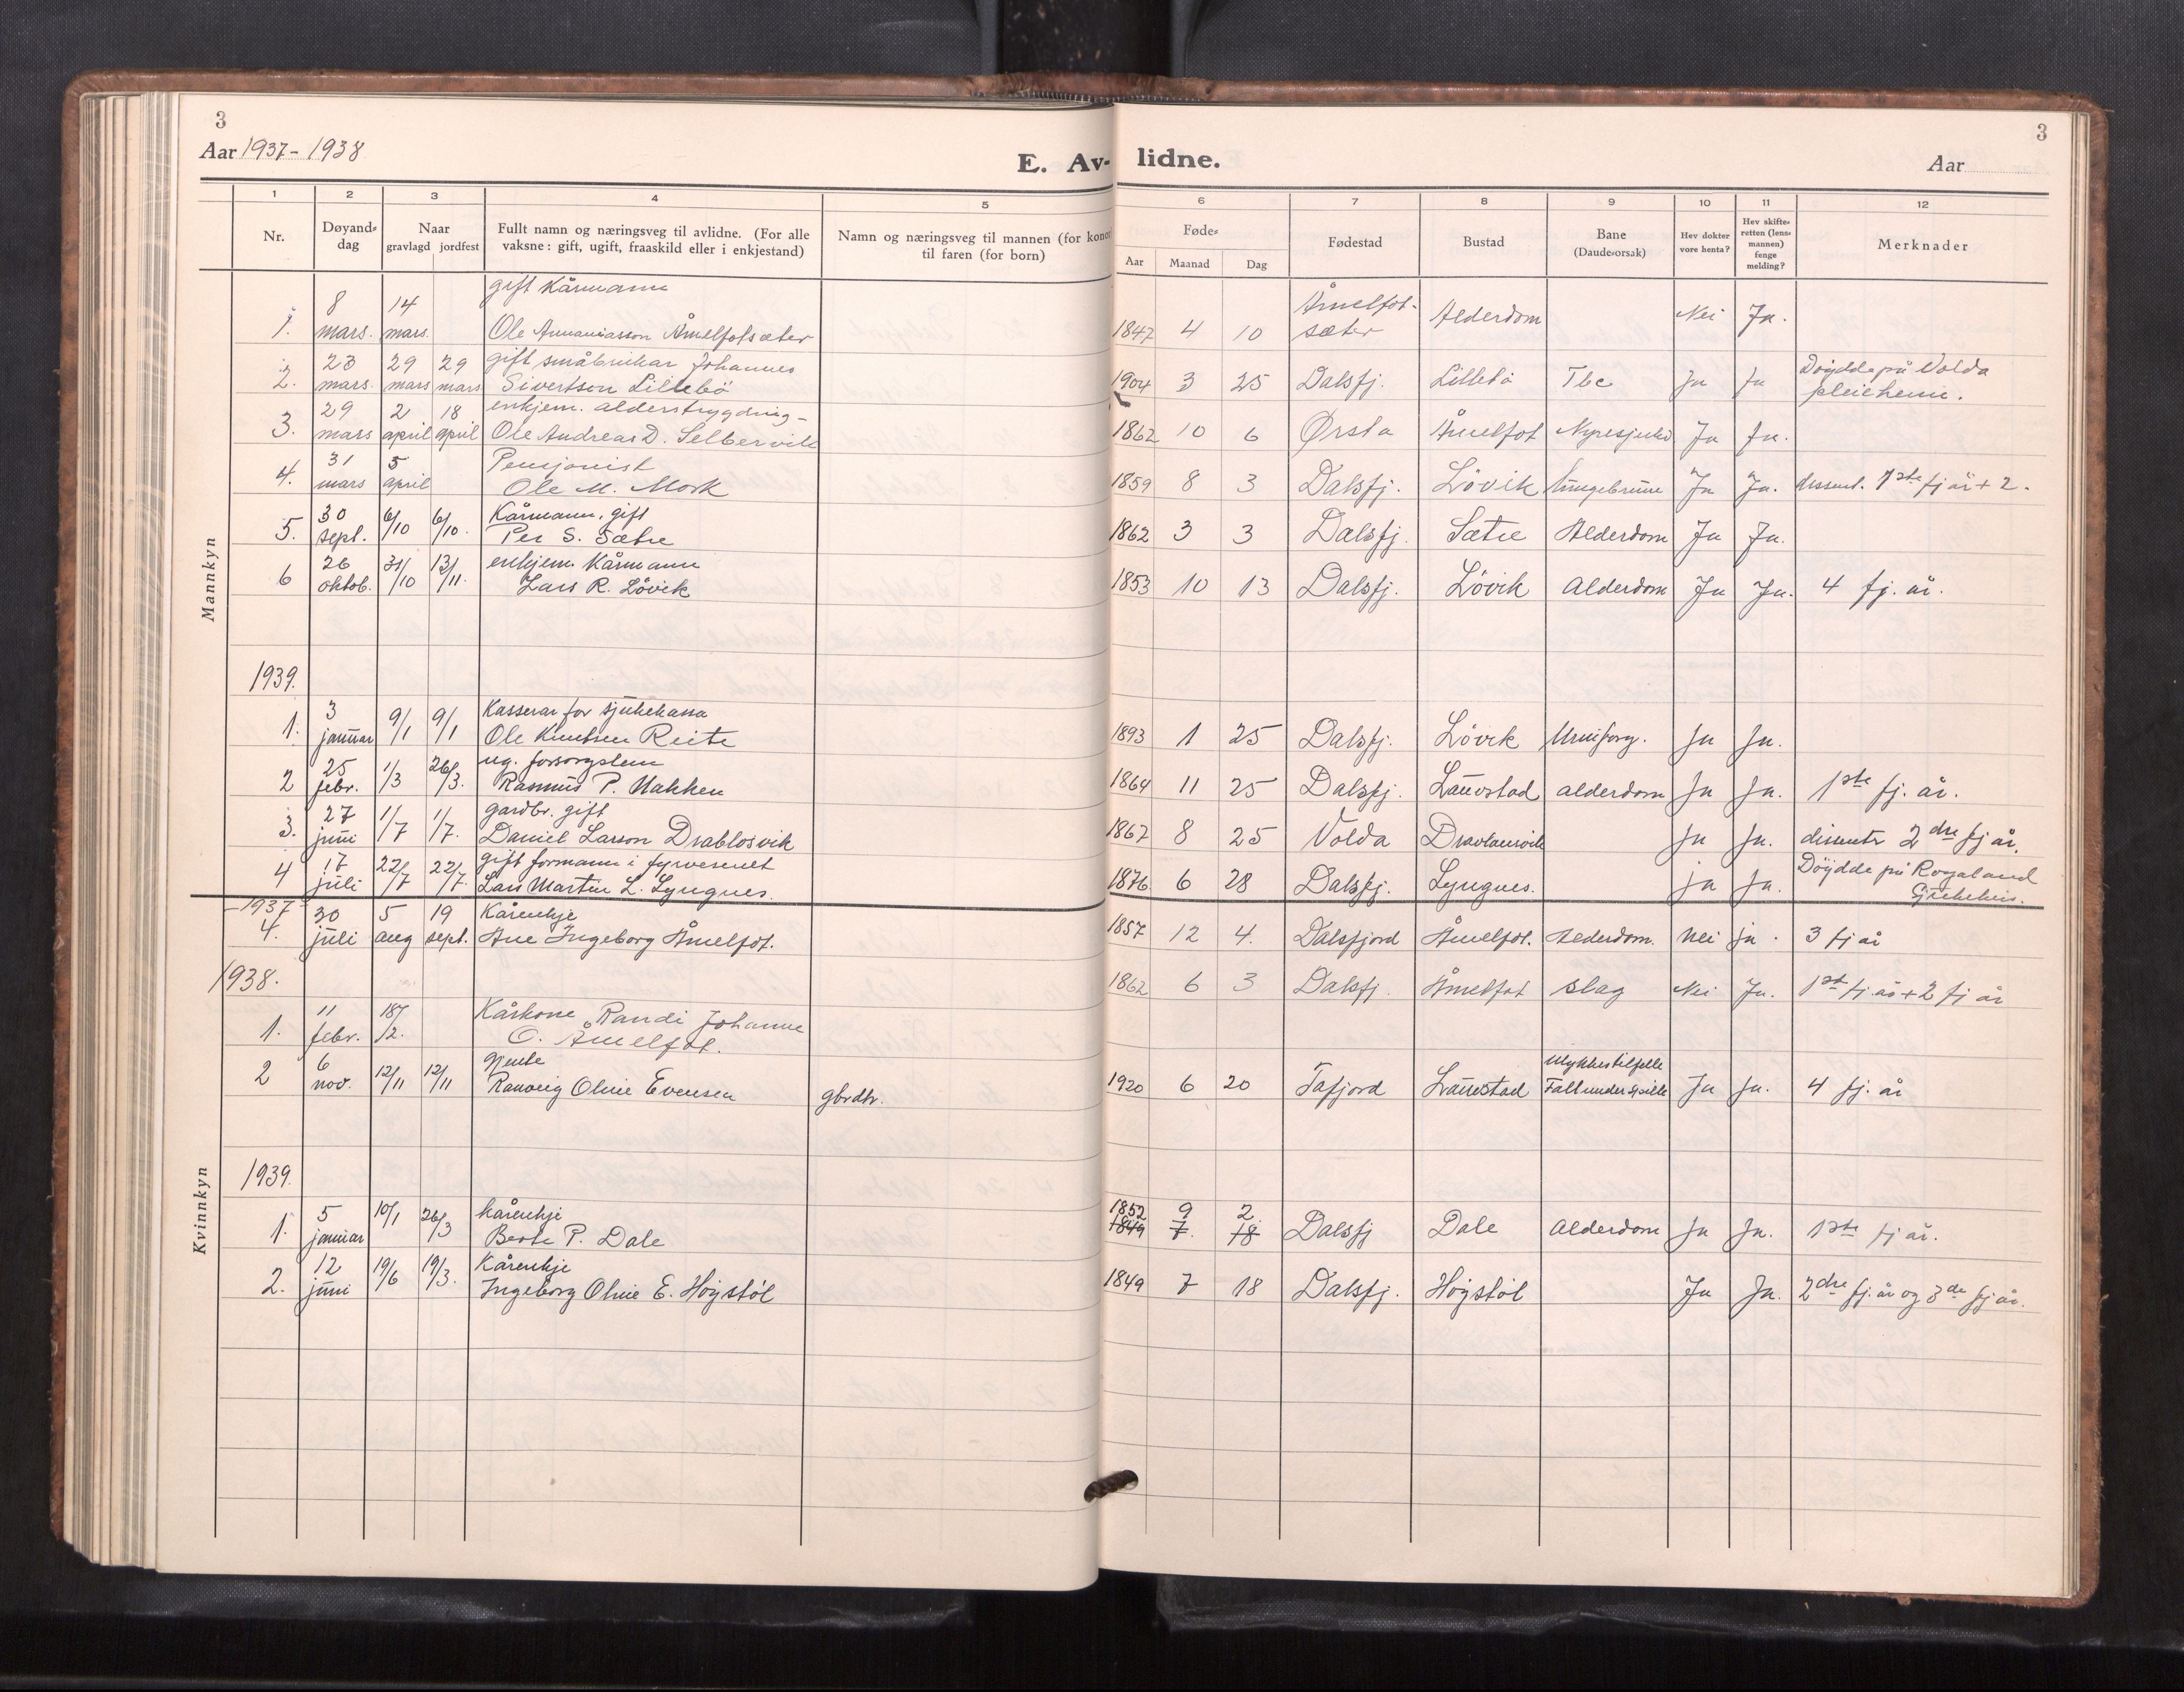 3
Aar 1937-1938
E. Av-
lidne.
3
Aar
1 2 3 4 5 6 7 8 9 10 11 12
Nr.
Døyand-
dag
Naar
gravlagd jordfest
Fullt namn og næringsveg til avlidne. (For alle
vaksne: gift, ugift, fraaskild eller i enkjestand)
Namn og næringsveg til mannen (for konor
til faren (for born)
Føde-
Aar Maanad Dag
Fødestad
Bustad
Bane
(Daude-orsak)
Hev dokter
vore henta?
Hev skifte-
retten (lens-
mannen)
fenge
melding?
Merknader
Mannkyn
8 14 gift Kårmann Åmelfot-
1. mars. mars. Ole Ananiasson Åmelfotsæter 1847 4 10 sæter Alderdom Nei Ja.
23 29 29 gift småbrukar Johannes Döydde på Volda
2. mars. mars mars Sivertson Lillebö 1904 3 25 Dalsfj. Lillebö Tbc Ja Ja pleieheim.
29 2 18 enkjem. alderstrygding-
3. mars april april Ole Andreas D. Selbervik 1862 10 6 Ørsta Åmelfot Nyresjukd Ja Ja.
31 5 Pensjonist
4. mars april Ole M. Mork 1859 8 3 Dalsfj. Lövik lungebrune Ja Ja. dissent. 1ste fj år + 2.
30 6/10 6/10. Kårmann, gift
5. sept. Per S. Sætre 1862 3 3 Dalsfj. Sætre Alderdom Ja Ja.
26 31/10 13/11. enkjem. Kårmann
6 oktob. Lars R. Lövik 1853 10 13 Dalsfj. Lövik Alderdom Ja Ja. 4 fj. år.
1939.
3 9/1 9/1 Kasserar for sjukekassa
1. januar Ole Knutsen Reite 1893 1 25 Dalsfj. Lövik Ja Ja.
25 1/3 26/3. ug. forsorgslem
2 febr. Rasmus P. Hakken 1864 11 25 Dalsfj. Lauvstad alderdom Ja Ja. 1ste fj. år.
27 1/7 1/7. gardbr. gift
3. juni Daniel Larson Drablosvik 1867 8 25 Volda Dravlausvik Ja Ja. dissenter 2dre fj år.
17 22/7 22/7. gift formann i fyrvesenet Döydde på Rogaland
4 juli Lars Martin L. Lyngnes. 1876 6 28 Dalsfj. Lyngnes. ja Ja. Sjukeheis.
Kvinnkyn
-1937- 30 5 19 Kårenkje
4. juli aug sept. Ane Ingeborg Åmelfot. 1857 12 4. Dalsfjord Åmelfot. Alderdom. Nei ja. 3 fj år
1938. 1862 6 3 Dalsfj. Åmelfot slag Nei Ja. 1ste fj. år + 2 fj år
11 18/2. Kårkone Randi Johanne
1. febr. O. Åmelfot.
6 12/11 12/11 Gjente Ulykkestilfelle
2 nov. Ranveig Oline Evensen gbrdtr. 1920 6 20 Tafjord Lauvstad Fall under Ja Ja. 4 fj. år
1939.
5 10/1 26/3 kårenkje 1852 9 2
1. januar Berte P. Dale 1849 7. 18 Dalsfj Dale Alderdom Ja Ja. 1ste fj år.
12 19/6 19/3. Kårenkje
2. juni Ingeborg Oline E. Högstöl 1849 7 18 Dalsfj. Högstöl Ja Ja. 2dre fj. år og 3de fj år.